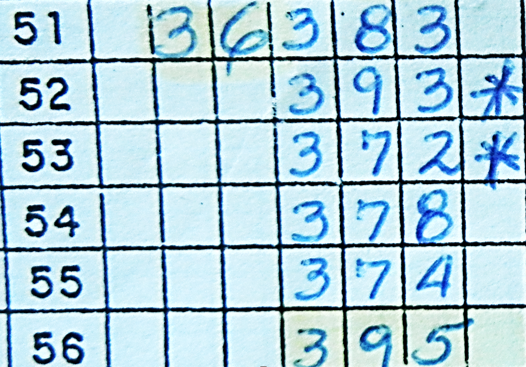 51 3 6 3 8 3
52 3 9 3 *
53 3 7 2 *
54 3 7 8
55 3 7 4
56 3 9 5